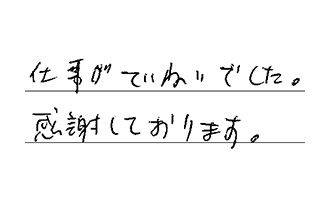 仕事がていねいでした。
感謝しております。